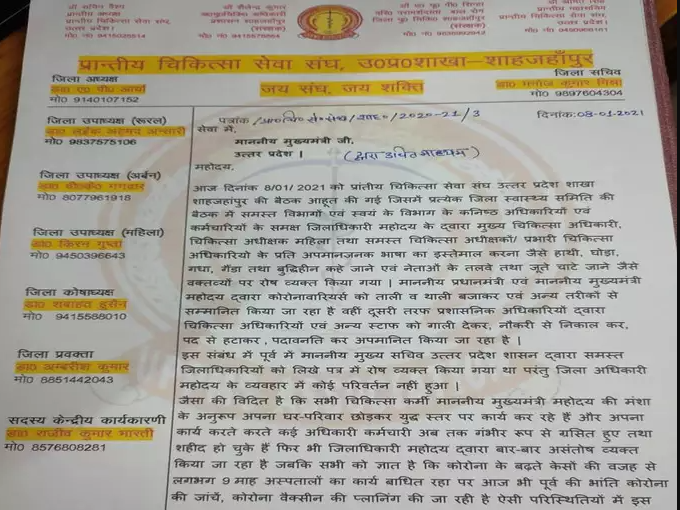 डा० सचिन वैश्य
प्रान्तीय अध्यक्ष
चिकित्सा सेवा संघ,
उत्तर प्रदेश
मो० नं०
डा० शैलेन्द्र कुमार
प्रशासन शाहजहाँपुर
(संरक्षक)
मो० नं०
(संरक्षक)
मो० नं०
डा० अमित सिंह
प्रान्तीय महासचिव
प्रान्तीय चिकित्सा सेवा संघ,
उत्तर प्रदेश।
मो० नं०
प्रान्तीय चिकित्सा सेवा संघ, उ०प्र०शाखा–शाहजहाँपुर
जिला अध्यक्ष
डा० ए० पी० आर्या
मो0 9140107152
जय संघ, जय शक्ति
जिला सचिव
डा० मनोज कुमार मिश्रा
मो0 9897604304
जिला उपाध्यक्ष (रूरल)
अहमद अन्सारी
मो0 9837575106
जिला उपाध्यक्ष (अर्बन)
गंगवार
मो0 8077961918
जिला उपाध्यक्ष (महिला)
डा0 किरन गुप्ता
मो0 9450396643
जिला कोषाध्यक्ष
डा0 शबाहत हुसैन
मो0 9415588010
जिला प्रवक्ता
डा0 अम्बरीश कुमार
मो0 8851442043
सदस्य केन्द्रीय कार्यकारणी
डा0 राजीव कुमार भारती
मो0 8576808281
पत्रांक /2020-21/3
दिनांक:08-01-2021
सेवा में,
माननीय मुख्यमंत्री जी,
उत्तर प्रदेश। (द्वारा उचित माध्यम)
महोदय,
आज दिनांक 8/01/ 2021 को प्रांतीय चिकित्सा सेवा संघ उत्तर प्रदेश शाखा
शाहजहांपुर की बैठक आहूत की गई जिसमें प्रत्येक जिला स्वास्थ्य समिति की
बैठक में समस्त विभागों एवं स्वयं के विभाग के कनिष्ठ अधिकारियों एवं
कर्मचारियों के समक्ष जिलाधिकारी महोदय के द्वारा मुख्य चिकित्सा अधिकारी,
चिकित्सा अधीक्षक महिला तथा समस्त चिकित्सा अधीक्षकों/ प्रभारी चिकित्सा
अधिकारियों के प्रति अपमानजनक भाषा का इस्तेमाल करना जैसे हाथी, घोड़ा,
गधा, गैंडा तथा बुद्धिहीन कहे जाने एवं नेताओं के तलवे तथा जूते चाटे जाने जैसे
वक्तव्यों पर रोष व्यक्त किया गया । माननीय प्रधानमंत्री एवं माननीय मुख्यमंत्री
महोदय द्वारा कोरोनावारियर्स को ताली व थाली बजाकर एवं अन्य तरीकों से
सम्मानित किया जा रहा है वहीं दूसरी तरफ प्रशासनिक अधिकारियों द्वारा
चिकित्सा अधिकारियों एवं अन्य स्टाफ को गाली देकर, नौकरी से निकाल कर,
पद से हटाकर, पदावनति कर अपमानित किया जा रहा है ।
इस संबंध में पूर्व में माननीय मुख्य सचिव उत्तर प्रदेश शासन द्वारा समस्त
जिलाधिकारियों को लिखे पत्र में रोष व्यक्त किया गया था परंतु जिला अधिकारी
महोदय के व्यवहार में कोई परिवर्तन नहीं हुआ ।
जैसा की विदित है कि सभी चिकित्सा कर्मी माननीय मुख्यमंत्री महोदय की मंशा
के अनुरूप अपना घर-परिवार छोड़कर युद्ध स्तर पर कार्य कर रहे हैं और अपना
कार्य करते करते कई अधिकारी कर्मचारी अब तक गंभीर रूप से ग्रसित हुए तथा
शहीद हो चुके हैं फिर भी जिलाधिकारी महोदय द्वारा बार-बार असंतोष व्यक्त
किया जा रहा है जबकि सभी को ज्ञात है कि कोरोना के बढ़ते केसों की वजह से
लगभग 9 माह अस्पतालों का कार्य बाधित रहा पर आज भी पूर्व की भांति कोरोना
की जांचें, कोरोना वैक्सीन की प्लानिंग की जा रही है ऐसी परिस्थितियों में इस